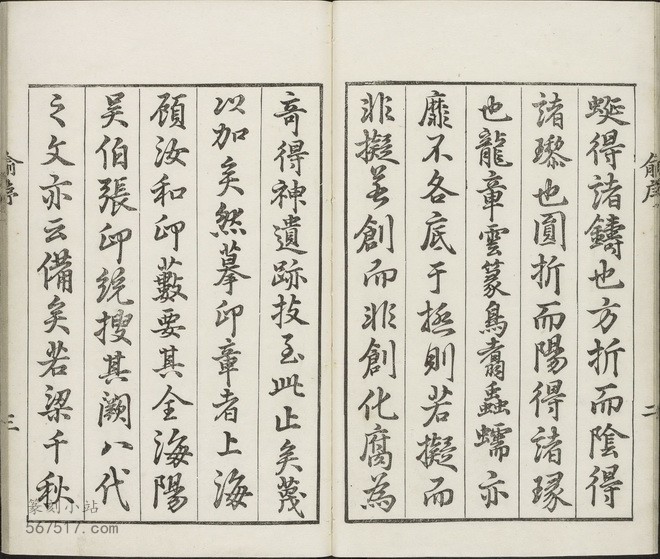 俞序
二
蜒得諸鑄也方折而陰得
諸也圓折而陽得諸琢
也龍章雲篆鳥翥蟲蠕亦
靡不各底于極則若擬而
非擬若創而非創化腐為
奇得神遺跡技至此止矣蔑
以加矣然摹印章者上海
顧汝和印藪要其全海陽
吳伯張印統搜其闕八代
之文亦云備矣若梁千秋
俞序
三
篆刻小站
567517.com